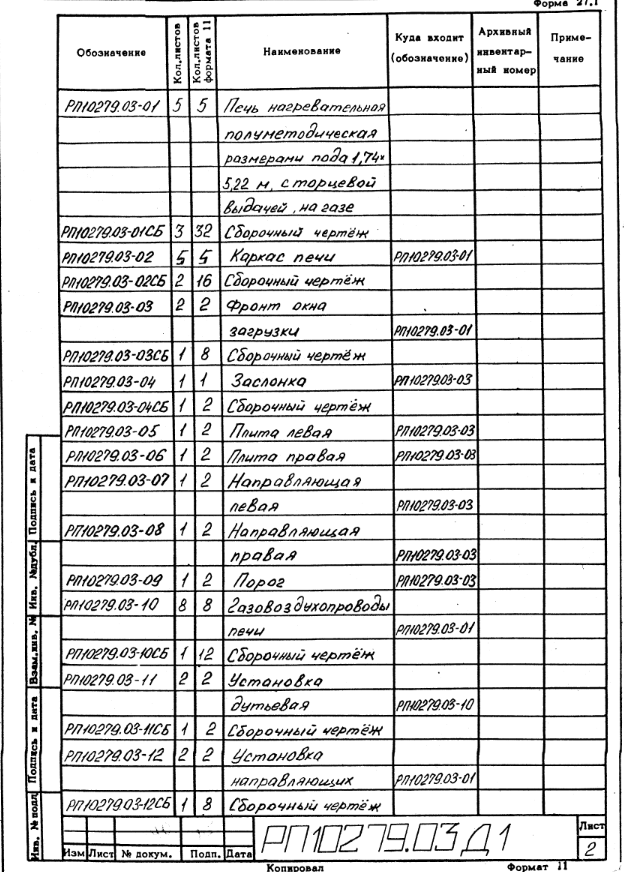 Форма 27.1
Обозначение Кол.листов Кол.листов формата 11 Наименование Куда входит (обозначение) Архивный инвентар-ный номер Приме-чание
РП10279.03-01 5 5 Печь нагревательная
полуметодическая
размерами пода 1,74×
5,22 м, с торцевой
выдачей, на газе
РП10279.03-01СБ 3 32 Сборочный чертёж
РП10279.03-02 5 5 Каркас печи РП10279.03-01
РП10279.03-02СБ 2 16 Сборочный чертёж
РП10279.03-03 2 2 Фронт окна
загрузки РП10279.03-01
РП10279.03-03СБ 1 8 Сборочный чертёж
РП10279.03-04 1 1 Заслонка РП10279.03-03
РП10279.03-04СБ 1 2 Сборочный чертёж
РП10279.03-05 1 2 Плита левая РП10279.03-03
РП10279.03-06 1 2 Плита правая РП10279.03-03
РП10279.03-07 1 2 Направляющая
левая РП10279.03-03
РП10279.03-08 1 2 Направляющая
правая РП10279.03-03
РП10279.03-09 1 2 Порог РП10279.03-03
РП10279.03-10 8 8 Газовоздухопроводы
печи РП10279.03-01
РП10279.03-10СБ 1 12 Сборочный чертёж
РП10279.03-11 2 2 Установка
дутьевая РП10279.03-10
РП10279.03-11СБ 1 2 Сборочный чертёж
РП10279.03-12 2 2 Установка
направляющих РП10279.03-01
РП10279.03-12СБ 1 8 Сборочный чертёж
Инв. № подл Подпись и дата Взам.инв. № Инв. №дубл. Подпись и дата
РП10279.03Д1
Лист
2
Изм Лист № докум. Подп. Дата
Копировал Формат 11